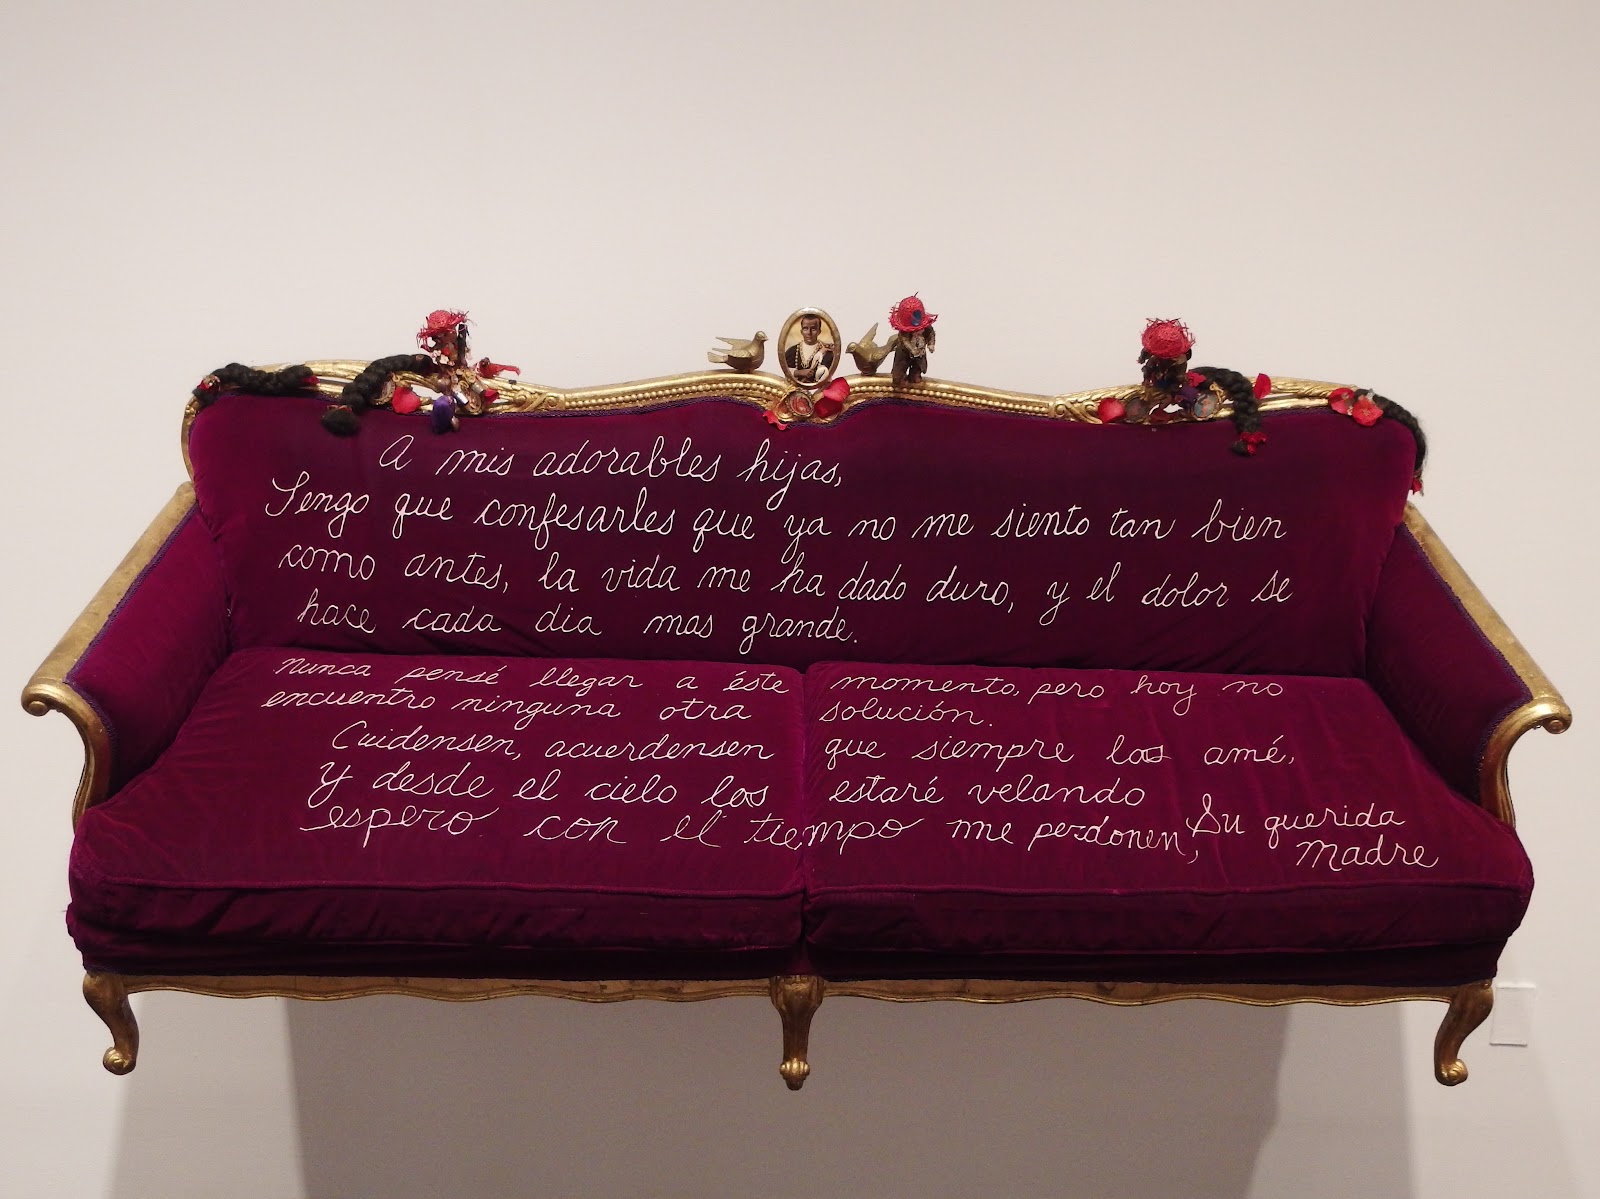 A mis adorables hijas,
Tengo que confesarles que ya no me siento tan bien
como antes, la vida me ha dado duro, y el dolor se
hace cada dia mas grande.
Nunca pensé llegar a éste momento, pero hoy no
encuentro ninguna otra solución.
Cuidensen, acuerdensen que siempre las amé,
Y desde el cielo las estaré velando
espero con el tiempo me perdonen,
Su querida
Madre